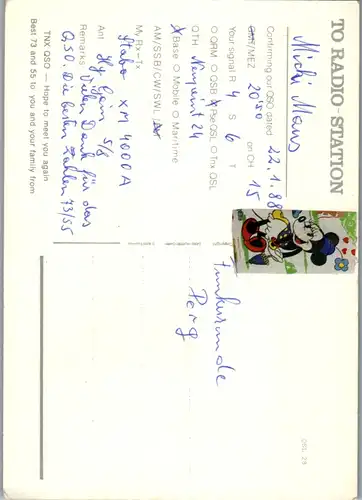 TO RADIO-STATION
Micki Maus
Confirming our QSO dated 22.1.88
GMT/MEZ 20°° on CH 15
Your signal R 4 S 6 T
O QRM O QSB X Pse QSL O Tnx QSL
QTH
X Base O Mobile O Maritime
AM/SSB/CW/SWL/
My Rx-Tx
Stabo XM 4000A
Ant Hy Gain 5/8
Remarks Vielen Dank für das
QSO. Die besten Zahlen 73/55
TNX QSO — Hope to meet you again
Best 73 and 55 to you and your family from
Funkerrunde
Perg
QSL 23